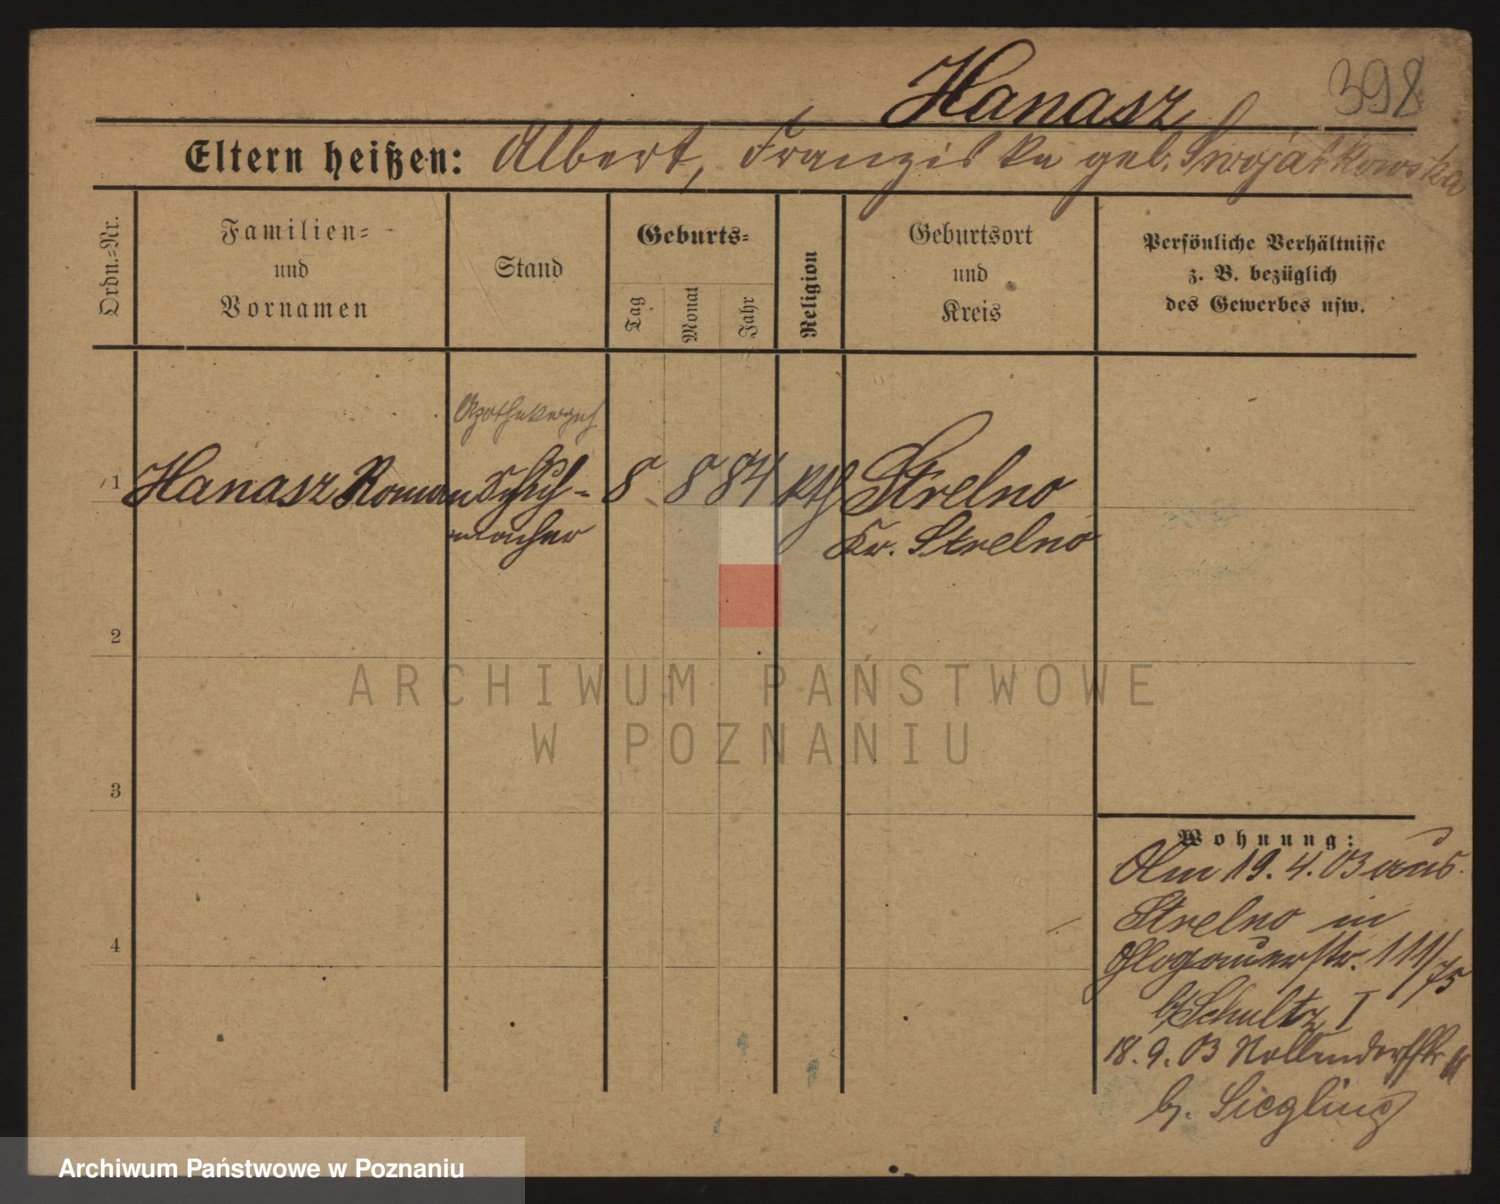 Hanasz
398
Eltern heißen: Albert, Franziska geb. Swojatkowska
Ordn.-Nr.
Familien-
und
Vornamen
Stand
Geburts-
Tag
Monat
Jahr
Religion
Geburtsort
und
Kreis
Persönliche Verhältnisse
z. B. bezüglich
des Gewerbes usw.
1 Hanasz Roman Schuh- 8 8 84 kth Strelno
macher Kr. Strelno
2
ARCHIWUM PAŃSTWOWE
W POZNANIU
3
Wohnung:
Am 19.4.03 aus
Strelno in
Glogauerstr. 111/75
b/Schultz I
4
18.9.03 Nollendorfstr
b. Siegling
Archiwum Państwowe w Poznaniu